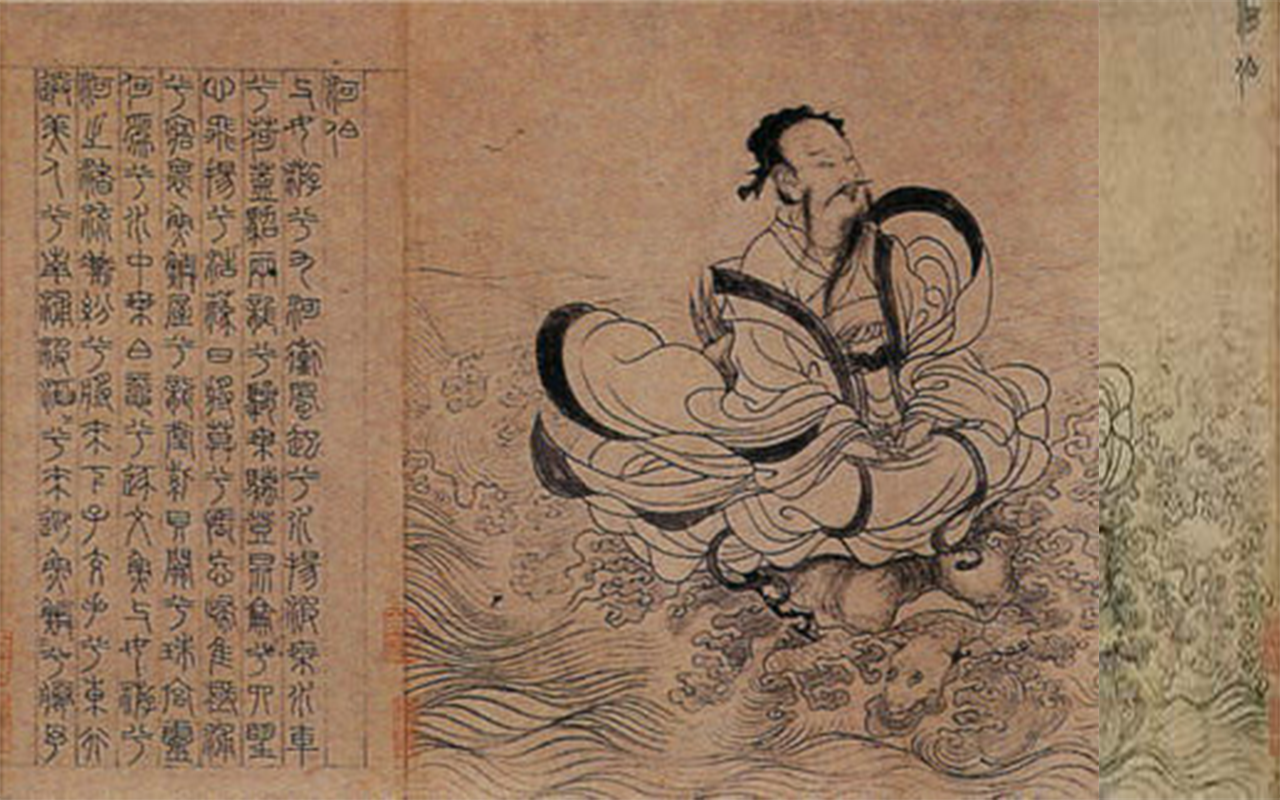 河伯
河伯
与女游兮九河衝風起兮水揚波乘水車
兮荷蓋駕兩龍兮驂螭登昆侖兮四望
心飛揚兮浩蕩日將莫兮悵忘歸惟極浦
兮寤懷魚鱗屋兮龍堂紫貝闕兮珠宮靈
何為兮水中乘白黿兮逐文魚与女游兮
河之渚流澌紛兮將來下子交手兮東行
送美人兮南浦波滔〻兮來迎魚鱗〻兮媵予